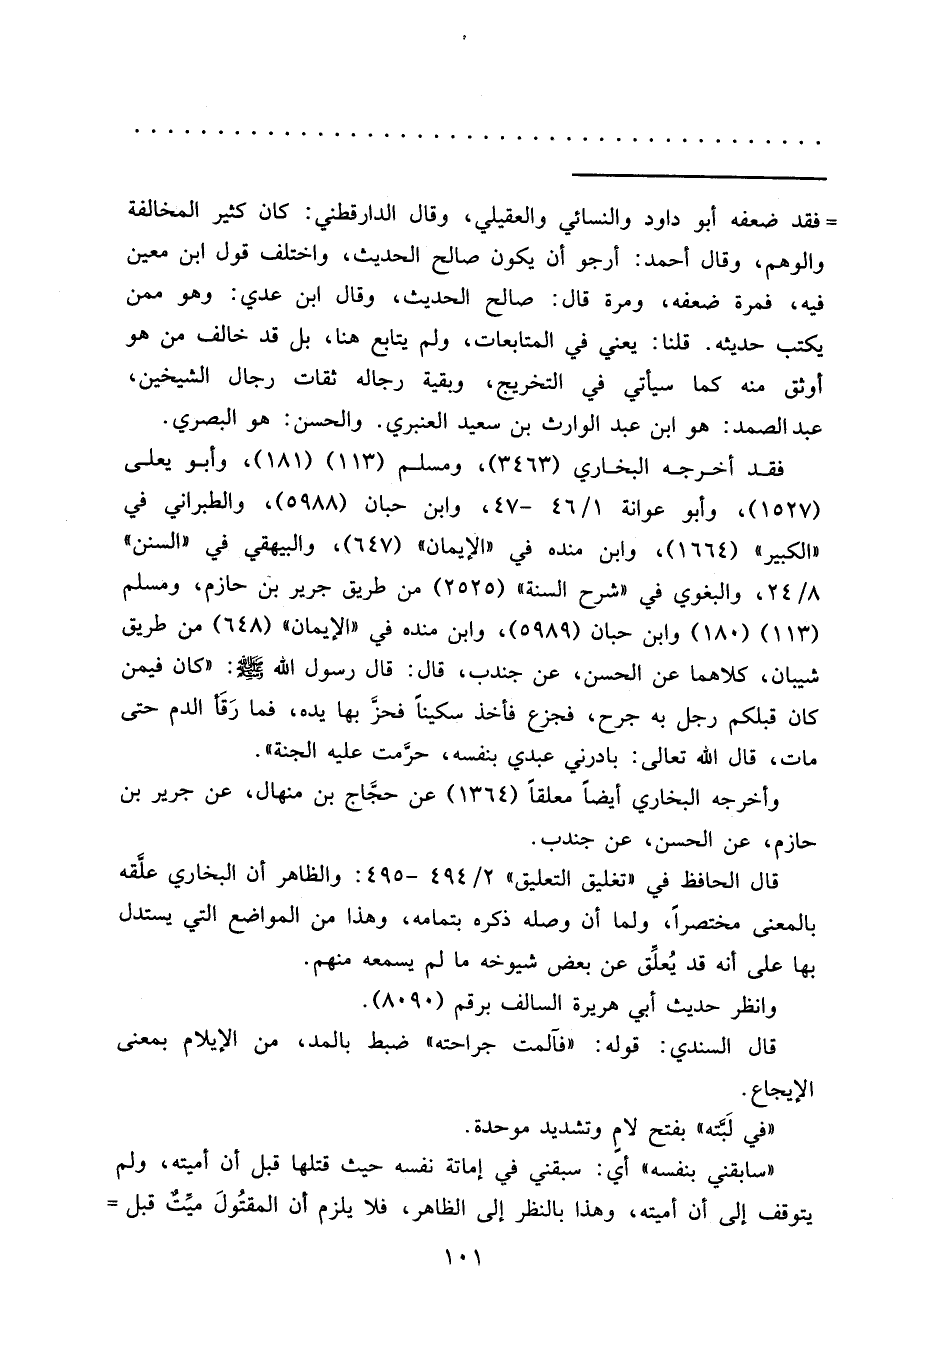 = فقد ضعفه أبو داود والنسائي والعقيلي، وقال الدارقطني: كان كثير المخالفة
والوهم، وقال أحمد: أرجو أن يكون صالح الحديث، واختلف قول ابن معين
فيه، فمرة ضعفه، ومرة قال: صالح الحديث، وقال ابن عدي: وهو ممن
يكتب حديثه. قلنا: يعني في المتابعات، ولم يتابع هنا، بل قد خالف من هو
أوثق منه كما سيأتي في التخريج، وبقية رجاله ثقات رجال الشيخين،
عبد الصمد: هو ابن عبد الوارث بن سعيد العنبري. والحسن: هو البصري.
فقد أخرجه البخاري (٣٤٦٣)، ومسلم (١١٣) (١٨١)، وأبو يعلى
(١٥٢٧)، وأبو عوانة ٤٦/١ -٤٧، وابن حبان (٥٩٨٨)، والطبراني في
«الكبير» (١٦٦٤)، وابن منده في «الإيمان» (٦٤٧)، والبيهقي في «السنن»
٢٤/٨، والبغوي في «شرح السنة» (٢٥٢٥) من طريق جرير بن حازم، ومسلم
(١١٣) (١٨٠) وابن حبان (٥٩٨٩)، وابن منده في «الإيمان» (٦٤٨) من طريق
شيبان، كلاهما عن الحسن، عن جندب، قال: قال رسول الله ﷺ: «كان فيمن
كان قبلكم رجل به جرح، فجزع فأخذ سكيناً فحزَّ بها يده، فما رَقَأ الدم حتى
مات، قال الله تعالى: بادرني عبدي بنفسه، حرَّمت عليه الجنة».
وأخرجه البخاري أيضاً معلقاً (١٣٦٤) عن حجَّاج بن منهال، عن جرير بن
حازم، عن الحسن، عن جندب.
قال الحافظ في «تغليق التعليق» ٤٩٤/٢ -٤٩٥: والظاهر أن البخاري علَّقه
بالمعنى مختصراً، ولما أن وصله ذكره بتمامه، وهذا من المواضع التي يستدل
بها على أنه قد يُعلِّق عن بعض شيوخه ما لم يسمعه منهم.
وانظر حديث أبي هريرة السالف برقم (٨٠٩٠).
قال السندي: قوله: «فآلمت جراحته» ضبط بالمد، من الإيلام بمعنى
الإيجاع.
«في لَبَّته» بفتح لامٍ وتشديد موحدة.
«سابقني بنفسه» أي: سبقني في إماتة نفسه حيث قتلها قبل أن أميته، ولم
يتوقف إلى أن أميته، وهذا بالنظر إلى الظاهر، فلا يلزم أن المقتُولَ ميِّتٌ قبل =
١٠١